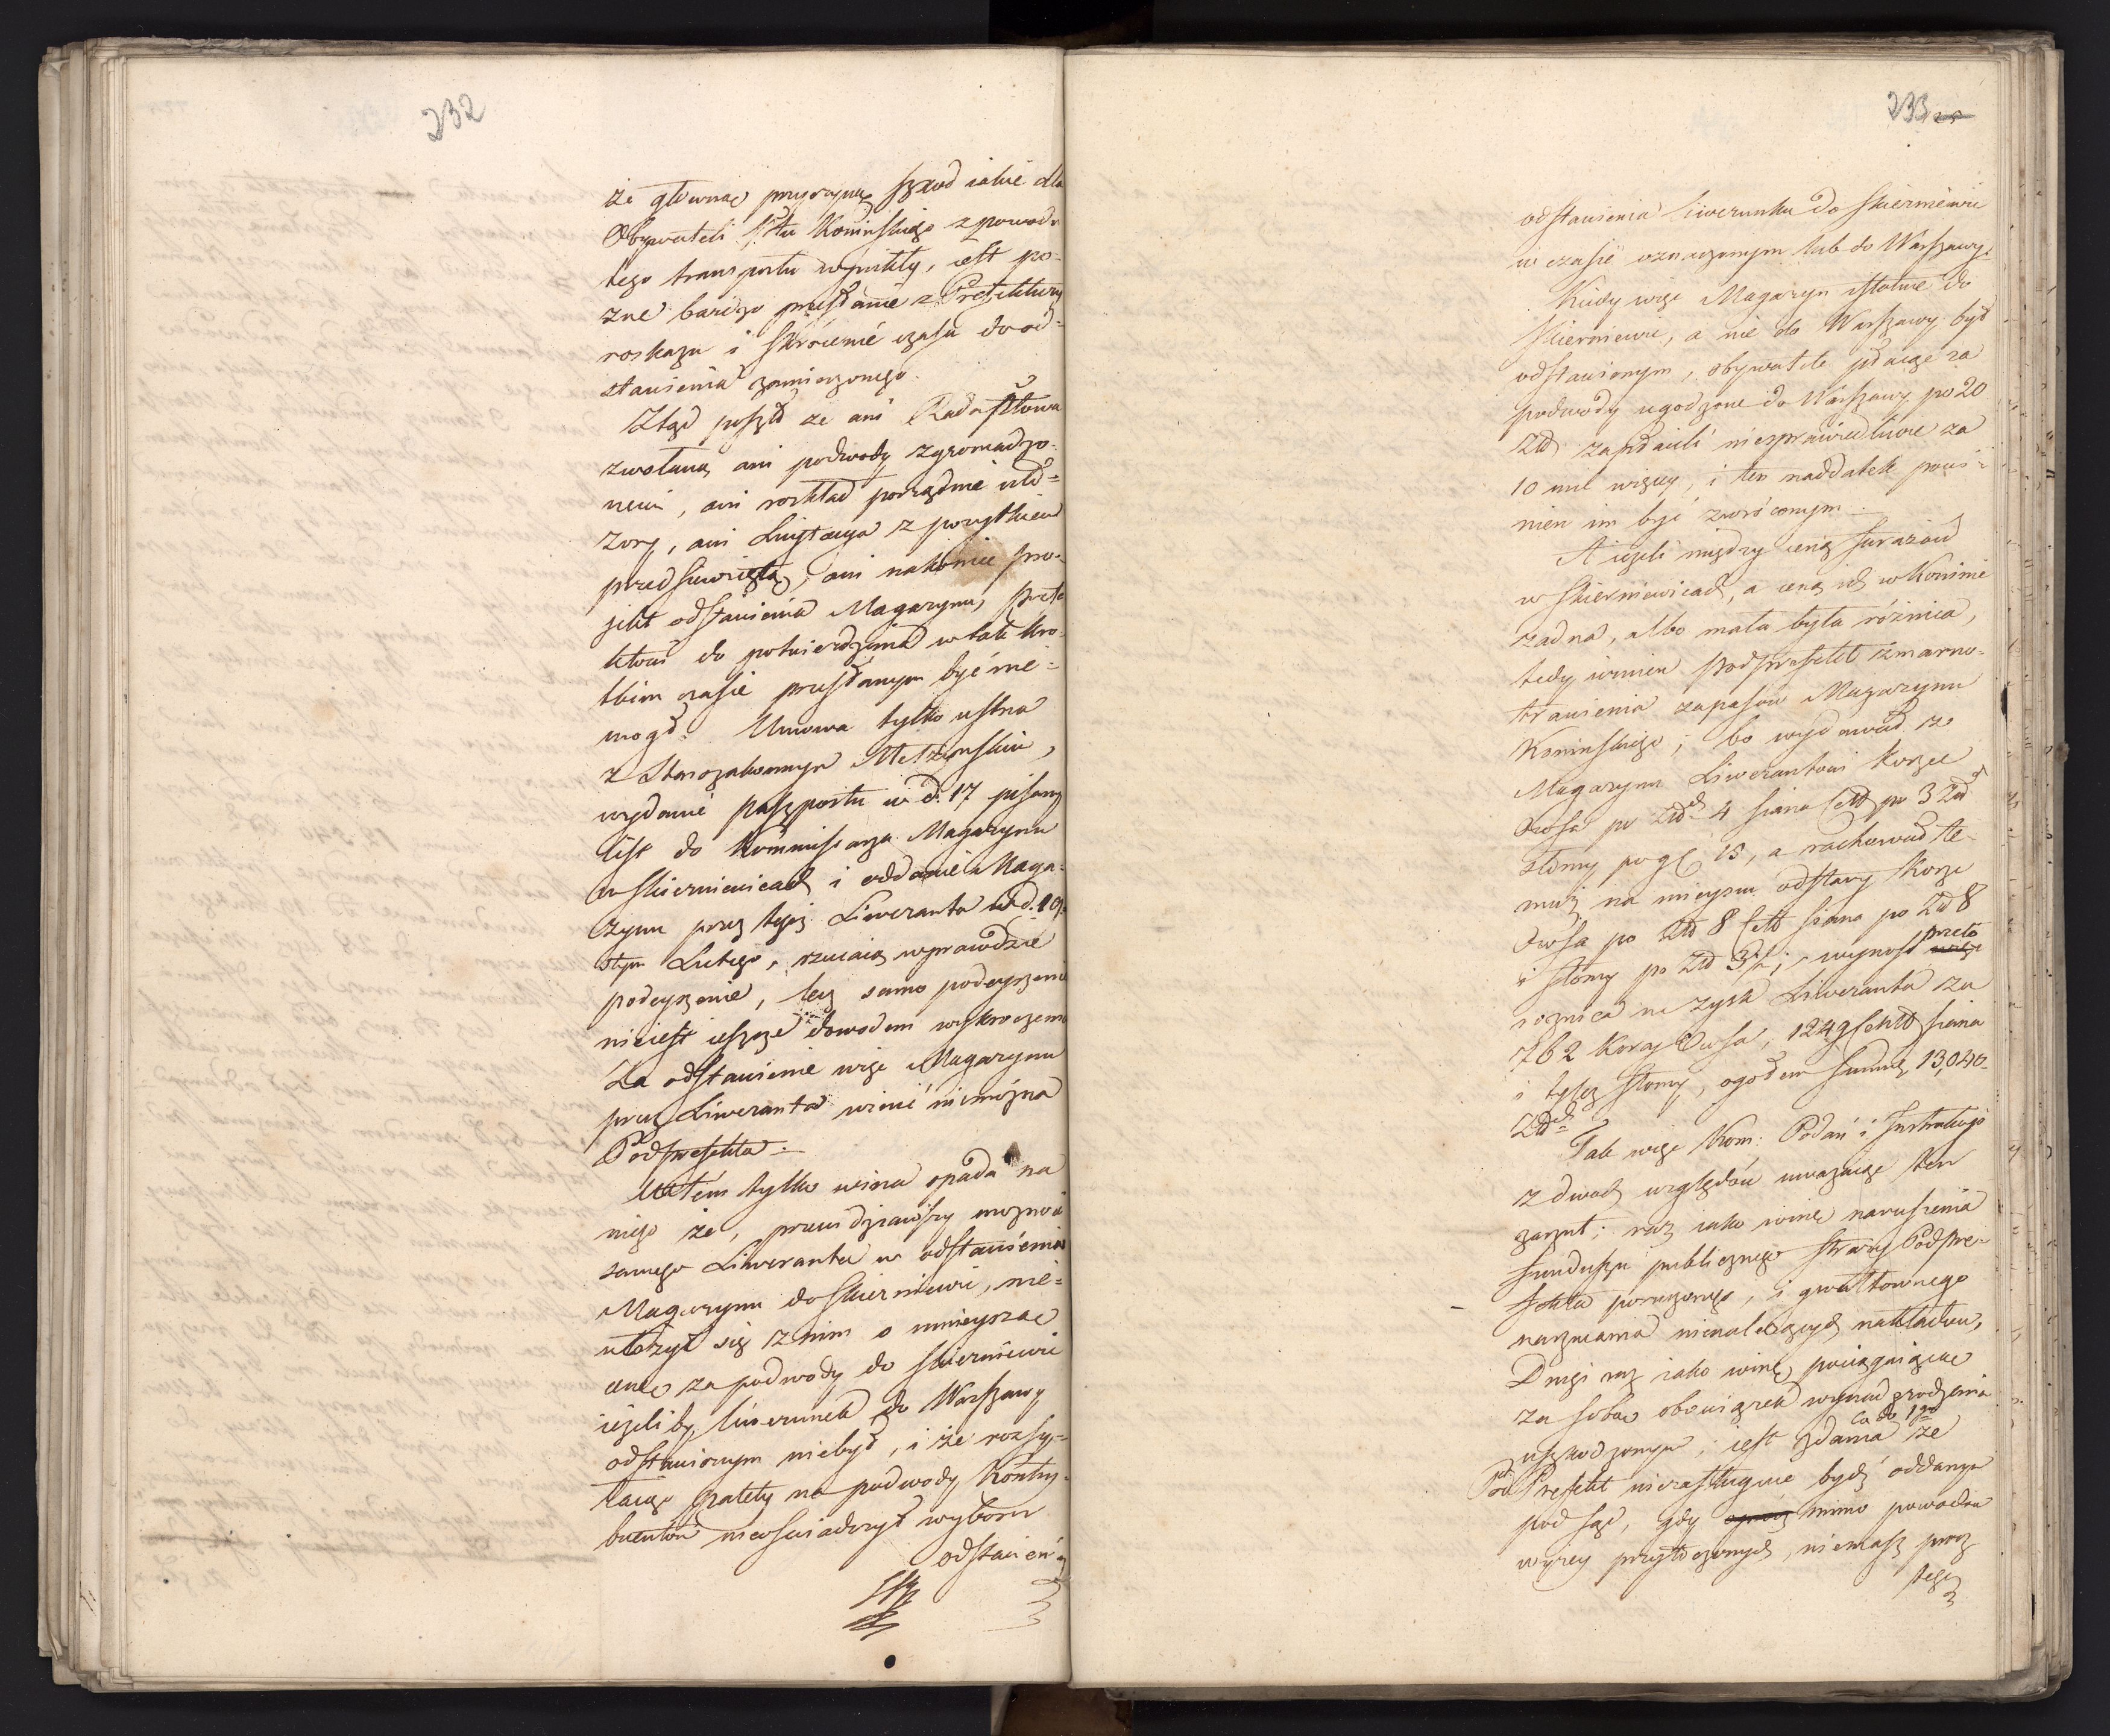 232
że główną przyczyną szkód iakie dla
Obywateli Pttu Konińskiego z powodu
tego transportu wynikły, iest po-
zne bardzo przesłanie z Prefektury
roskazu i skrócenie czasu do od=
stawienia zamierzonego.
Ztąd poszło że ani Rada Pttowa
zwołaną, ani podwody zgromadzo-
nemi, ani roskład porządnie uło=
żony, ani Licytacya z pożytkiem
przedsięwzięta, ani nakoniec pro-
jekt odstawienia Magazynu, Prefe
ktowi do potwierdzenia w tak kro-
tkim czasie przesłanym być nie=
mogł. Umowa tylko ustna
z Starozakonnym
wydanie paszportu w d. 17 pisany
list do Kommissarza Magazynu
w Skierniewicach i oddanie Maga=
zynu przez tegoż Liweranta w d. 19
stym Lutego, rzucaią wprawdzie
podeyrzenie, lecz samo podeyrzenie
nieiest ieszcze dowodem wykroczenia
Za odstawienie więc Magazynu
przez Liweranta winić niemożna
Podprefekta.
Wtém tylko wina spada na
niego że, przewidziawszy możność
samego Liweranta w odstawieniu
Magazynu do Skierniewic, nie=
ułożył się z nim o mnieyszą
cenę za podwody do Skierniewic
ieżeliby liwerunek do Warszawy
odstawionym niebył, i że rozsy=
łaiąc palety na podwody Kontry-
buentów nieoświadczył wyboru
odstawienia
233
odstawienia liwerunku do Skierniewic
w czasie oznaczonym lub do Warszawy.
Kiedy więc Magazyn istotnie do
Skierniewic, a nie do Warszawy był
odstawionym, obywatele płacąc za
podwody ugodzone do Warszawy po 20
Złł zapłacili niesprawiedliwie za
10 mil więcey, i ten naddatek powi-
nien im być zwróconym.
A ieżeli między ceną furażów
w Skierniewicach, a ceną ich w Koninie
żadna, albo mała była róźnica,
tedy winien Podprefekt zmarno-
trawienia zapasów Magazynu
Konińskiego; bo wydawał z
Magazynu Liwerantowi korzec
Owsa po Złł 4 siana Cett po 3 Złł
słomy po g 15, a rachował te-
muż na mieyscu odstawy korzec
Owsa po Złł 8 Cett siana po Złł 8
i słomy po Złł 3; wynosi przeto
roznica na zysk Liweranta za
762 korcy Owsa, 1249 Centt siana
i tyleż słomy, ogołem summę 13,040
Złł
Tak więc Kom: Podań i Instrukcyi
z dwóch względów uważaiąc ten
zarzut; raz iako winę naruszenia
funduszu publicznego straży Podpre-
fekta poruczonego, i gwałtownego
narzucania nienależących nakładów,
Drugi raz iako winę pociągaiącą
za sobą obowiązek wynadgrodzenia
uszkodzonym; iest zdania co do 1go że
Pod Prefekt niezasługuie bydź oddanym
pod sąd, gdy mimo powodów
wyżey przytoczonych, niemasz przez
tego